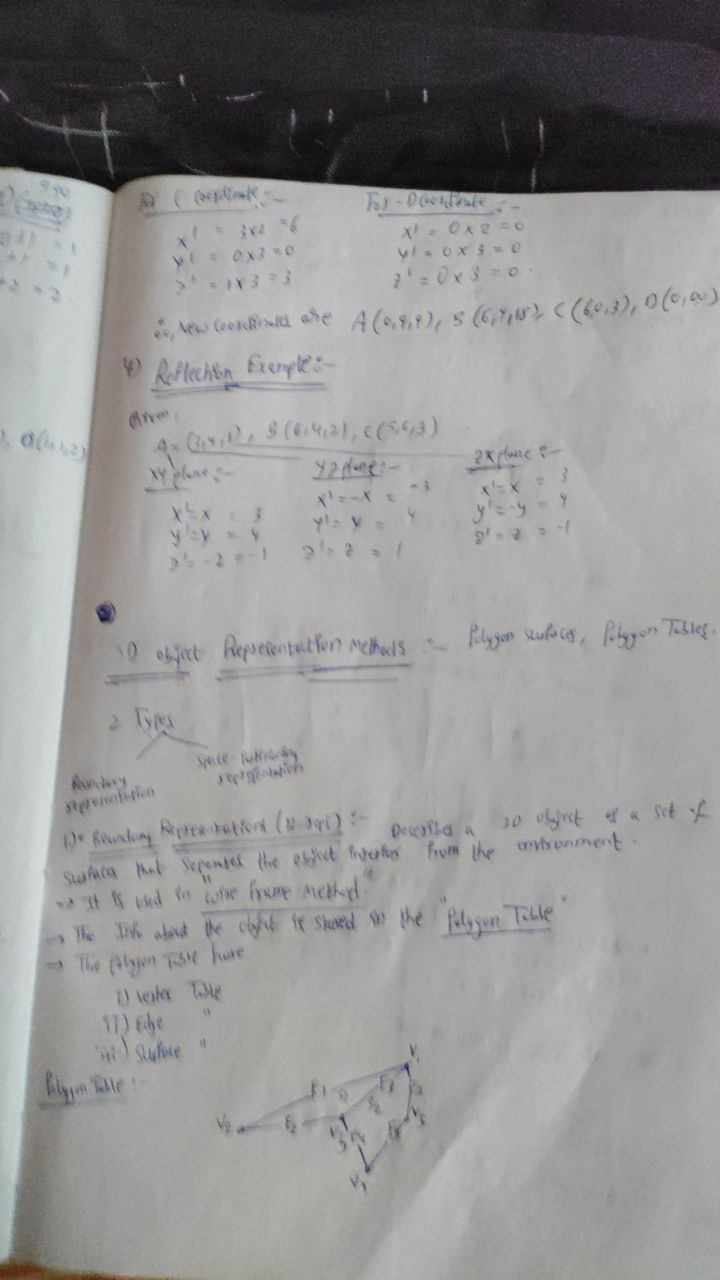 For C Coordinate :-
x' = 3x2 = 6
y' = 0x3 = 0
z' = 1x3 = 3
For - D Coordinate :-
x' = 0x2 = 0
y' = 0x3 = 0
z' = 0x3 = 0.
New Coordinates are A(0,9,9), B(6,9,18), C(6,0,3), D(0,0,0)
4) Reflection Example :-
Given,
A = (3,4,1), B(6,4,2), C(5,6,3)
XY plane :-
x'=x = 3
y'=y = 4
z'=-z = -1
YZ plane :-
x'=-x = -3
y'=y = 4
z'=z = 1
ZX plane :-
x'=x = 3
y'=-y = 4
z'=z = -1
object Representation Methods :- Polygon Surfaces, Polygon Tables.
2 Types
Boundary
representation
representation
1) Boundary Representations (B-reps) :- Describes a 3D object as a set of
Surfaces that separates the object interior from the environment.
→ It is used in "wire frame method."
→ The Info about the object is stored in the "Polygon Table"
→ The polygon Table have
i) Vertex Table
ii) Edge "
iii) Surface "
Polygon Table :-
V1
E1
E3
S1
S2
V2
E2
V3
V5
V4